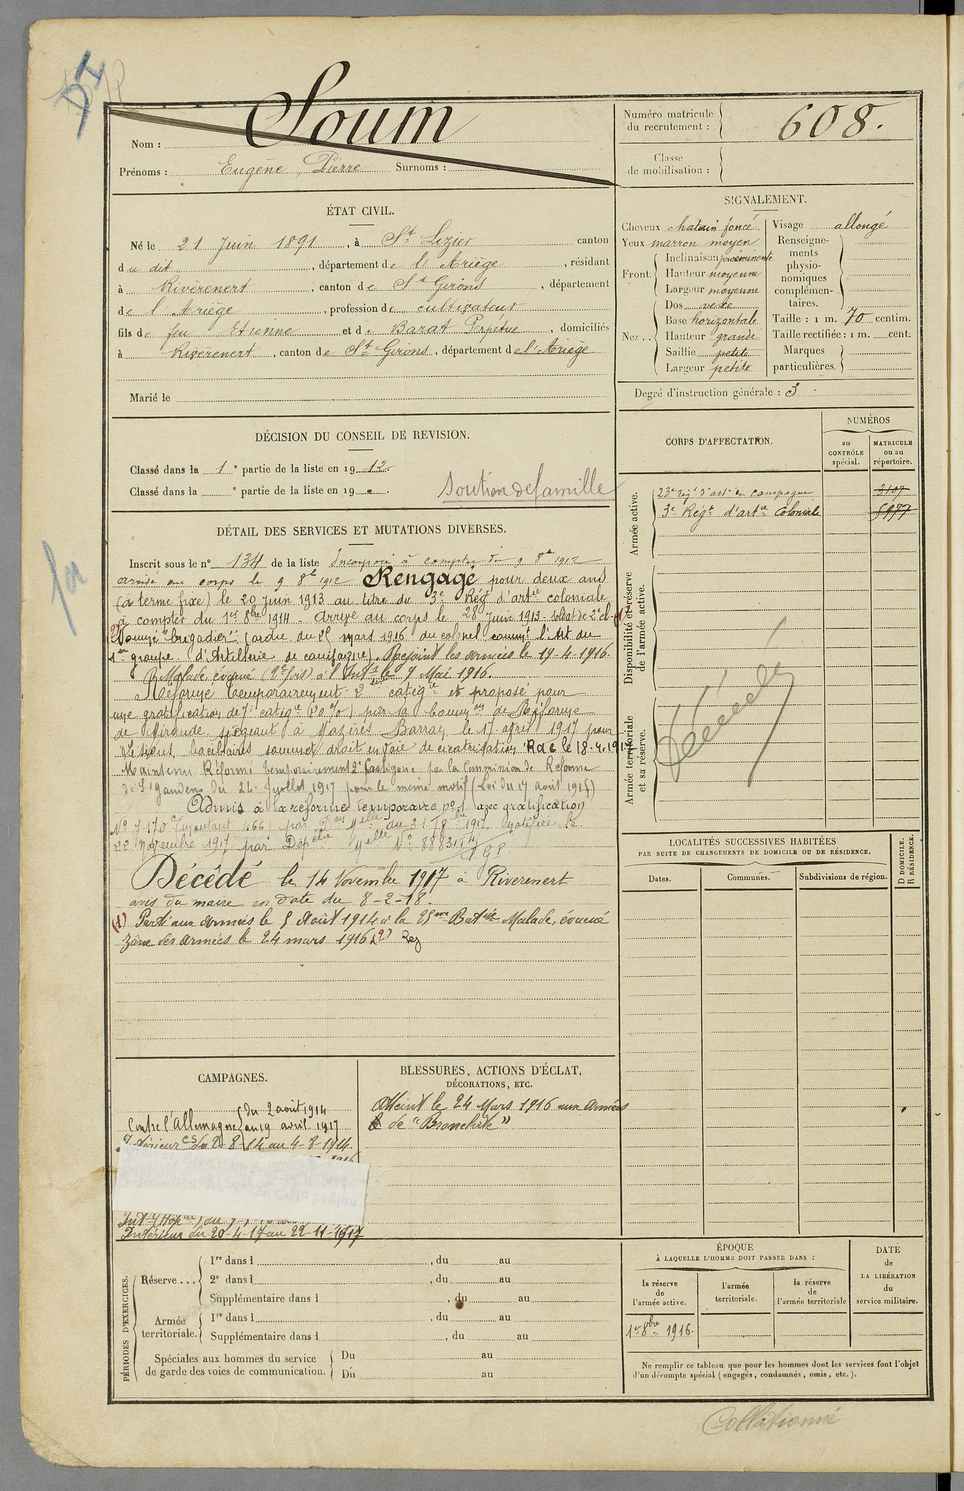 DI
Nom : Soum
Prénoms : Eugène, Pierre Surnoms :
Numéro matricule du recrutement : 608.
Classe de mobilisation :
ÉTAT CIVIL.
Né le 21 Juin 1891, à St Lizier canton
du dit, département de l'Ariège, résidant
à Rivèrenert, canton de St Girons, département
de l'Ariège, profession de cultivateur
fils de feu Etienne et de Barat Perpétue, domiciliés
à Rivèrenert, canton de St Girons, département de l'Ariège
Marié le
SIGNALEMENT.
Cheveux chatain foncé
Yeux marron moyen
Front. Inclinaison proéminente
Hauteur moyenne
Largeur moyenne
Nez... Dos
Base horizontale
Hauteur grande
Saillie petite
Largeur petite
Visage allongé
Renseignements physionomiques complémentaires.
Taille : 1 m. 70 centim.
Taille rectifiée : 1 m. cent.
Marques particulières.
Degré d'instruction générale : 3
DÉCISION DU CONSEIL DE REVISION.
Classé dans la 1e partie de la liste en 1912
Classé dans la e partie de la liste en 19
soutien de famille
CORPS D'AFFECTATION.
NUMÉROS
au CONTRÔLE spécial.
MATRICULE ou au répertoire.
Armée active.
23e Régt d'artie de campagne
3e Régt d'artie Coloniale
Disponibilité et réserve de l'armée active.
Armée territoriale et sa réserve.
Décédé
DÉTAIL DES SERVICES ET MUTATIONS DIVERSES.
Inscrit sous le n° 134 de la liste Incorporé à compter du 9 8bre 1912
arrivé au corps le 9 8bre 1912 Rengagé pour deux ans
(à terme fixe) le 20 juin 1913 au titre du 3e Régt d'artie coloniale
à compter du 1er 8bre 1914. Arrivé au corps le 28 Juin 1913. soldat de 2e cl. (1)
Nommé "brigadier" (ordre du 25 mars 1916 du colonel commt l'Art du
1er groupe d'Artillerie de campagne). Rejoint les armées le 19-4-1916.
Malade, évacué à l'Intr le 7 Mai 1916.
Réformé temporairement 2e catégie et proposé pour
une gratification de 7e catégie (20%) par la Common de Réforme
de Mirande siégeant à Mazères Baraz, le 17 avril 1917 pour
R d C le 18.4.1917
Maintenu Réformé temporairement 2e Catégorie par la Commission de Réforme
de St Gaudens du 24 Juillet 1917 pour le même motif (Loi du 17 août 1915)
Admis à la réforme temporaire n° 1 avec gratification
Décédé le 14 Novembre 1917 à Riverenert
avis du maire en date du 8-2-18.
(1) Parti aux armées le 5 Août 1914 à la 25me Batie. Malade, évacué
Zone des armées le 24 mars 1916 (2)
LOCALITÉS SUCCESSIVES HABITÉES
PAR SUITE DE CHANGEMENTS DE DOMICILE OU DE RÉSIDENCE.
Dates. Communes. Subdivisions de région.
D DOMICILE. R RÉSIDENCE.
CAMPAGNES.
Contre l'Allemagne du 2 août 1914 au 19 avril 1917
Intérieur CS du 2-8-14 au 4-8-1914.
Intérieur du 20-4-17 au 22-11-1917
BLESSURES, ACTIONS D'ÉCLAT,
DÉCORATIONS, ETC.
Atteint le 24 Mars 1916 aux Armées
de "Bronchite"
PÉRIODES D'EXERCICES.
Réserve ... 1re dans l , du au
2e dans l , du au
Supplémentaire dans l , du au
Armée territoriale. 1re dans l , du au
Supplémentaire dans l , du au
Spéciales aux hommes du service de garde des voies de communication. Du au
Du au
ÉPOQUE
À LAQUELLE L'HOMME DOIT PASSER DANS :
la réserve de l'armée active.
l'armée territoriale.
la réserve de l'armée territoriale
DATE de LA LIBÉRATION du service militaire.
1er 8bre 1916.
Ne remplir ce tableau que pour les hommes dont les services font l'objet
d'un décompte spécial (engagés, condamnés, omis, etc.).
Collationné